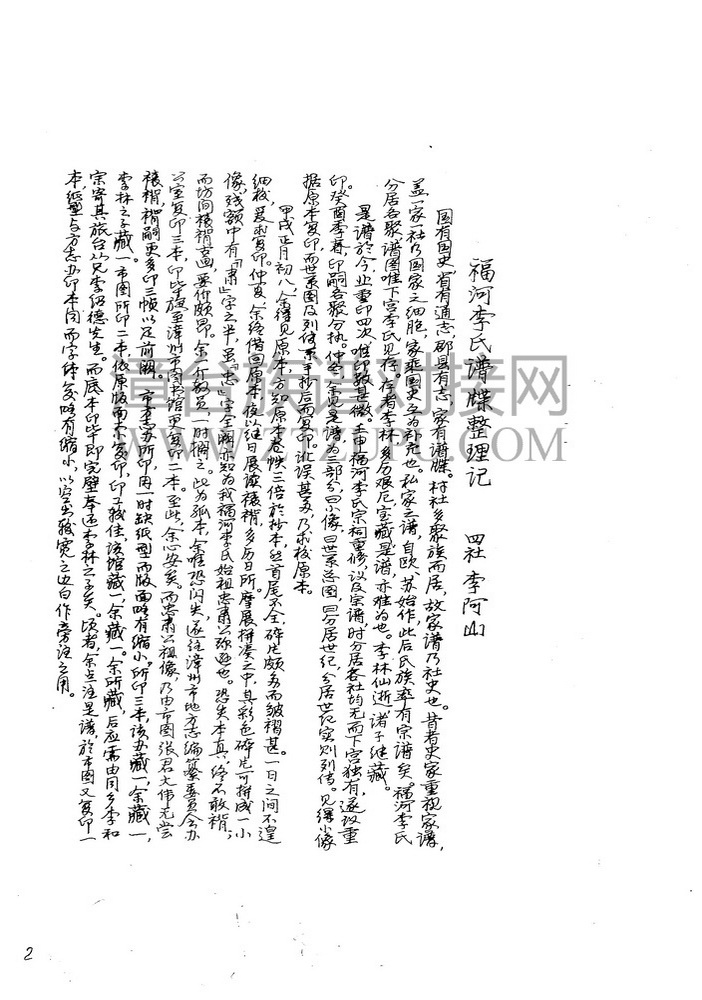 福河李氏譜牒整理记
四社 李阿山
国有国史，省有通志，郡县有志，家有谱牒。村社多聚族而居，故家谱乃社史也。昔者史家重视家谱，
盖一家一社乃国家之细胞，家乘国史之为部充也。私家之谱，自欧、苏始作，此后民族率有宗谱矣。福河李氏
分居各聚，谱图唯下宫李氏见存。存者李林，多历艰厄，宝藏是谱，亦难为也。李林仙逝，诸子继藏。
是谱於今，业重印四次，唯印数甚微。壬申福河李氏宗祠重修，议及宗谱，时分居各社均无而下宫独有，遂议重
印。癸酉季春，印嗣各聚分执。仲冬，余见是谱为三部分，曰小像，曰世系总图，曰分居世纪，分居世纪实则列传。见得小像
据原本复印，而世系图及列传系手抄后而复印。讹误甚多，乃求核原本。
甲戌正月初八，余得见原本，方知原本卷帙三倍於抄本，然首尾不全，碎片颇多而皱褶甚。一日之间不遑
细核，爰求复印。仲夏，余终借回原本，夜以继日展读裱褙，多历日所。摩展拼凑之中，其彩色碎片可拼成一小
像，残额中有「肃」字之半，虽「忠」字全阙，亦知为我福河李氏始祖忠肃公弥逊也。恐失本真，终不敢褙；
而坊间裱褙高迈，要价颇昂。余一介教员，一时搁之。此为孤本，余唯恐闪失，遂往漳州市地方志编纂委员会办
公室复印三本，印毕旋至漳州市图书馆更复印二本。至此，余心安矣。而忠肃公祖像，乃由市图张君大伟先尝
裱褙，褙嗣更多印三帧以足前阙。市方志办所印，因一时缺纸型而版面略有缩小。所印三本，该办藏一，余藏一，
李林之子藏一。市图所印二本，依原版面不复印，印工较佳，该馆藏一，余藏一。余所藏，后应需由同乡李和
宗寄其旅台从兄李绍德先生。而底本印毕即完璧奉还李林之子矣。顷者，余点注是谱，於市图又复印一
本，纸型与方志办印本同而字体复略有缩小，以空出较宽之边白作旁注之用。
道台族谱对接网
WWW.ZTZUPU.COM
2